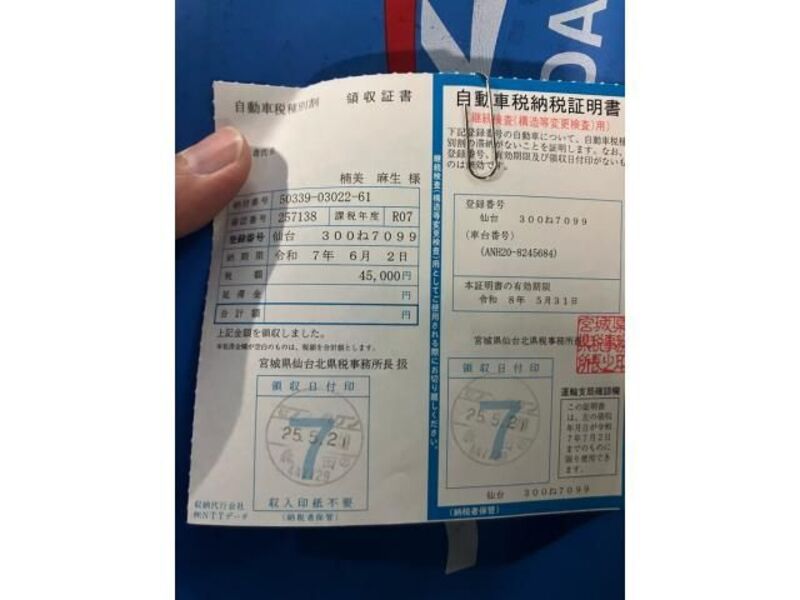 DA
自動車税種別割 領収証書
楠美 麻生 様
納付番号 50339-03022-61
確認番号 257138 課税年度 R07
登録番号 仙台 300ね7099
納期限 令和 7年 6月 2日
税額 45,000円
延滞金 円
合計額 円
上記金額を領収しました。
※延滞金欄が空白のものは、税額を合計額とします。
宮城県仙台北県税事務所長 扱
領収日付印
7
25.5.21
収入印紙不要
(納税者保管)
収納代行会社
㈱NTTデータ
継続検査(構造等変更検査)用としてご使用される際にお切り離しください。
自動車税納税証明書
(継続検査(構造等変更検査)用)
下記登録番号の自動車について、自動車税種
別割の滞納がないことを証明します。なお、
登録番号、有効期限及び領収日付印がないも
のは無効です。
登録番号
仙台 300ね7099
(車台番号)
(ANH20-8245684)
本証明書の有効期限
令和 8年 5月31日
宮城県仙台北県税事務所長
領収日付印
7
25.5.21
運輸支局確認欄
この証明書
は、左の領収
年月日が令和
7年7月2日
までのものに
限り使用でき
ます。
仙台 300ね7099
(納税者保管)